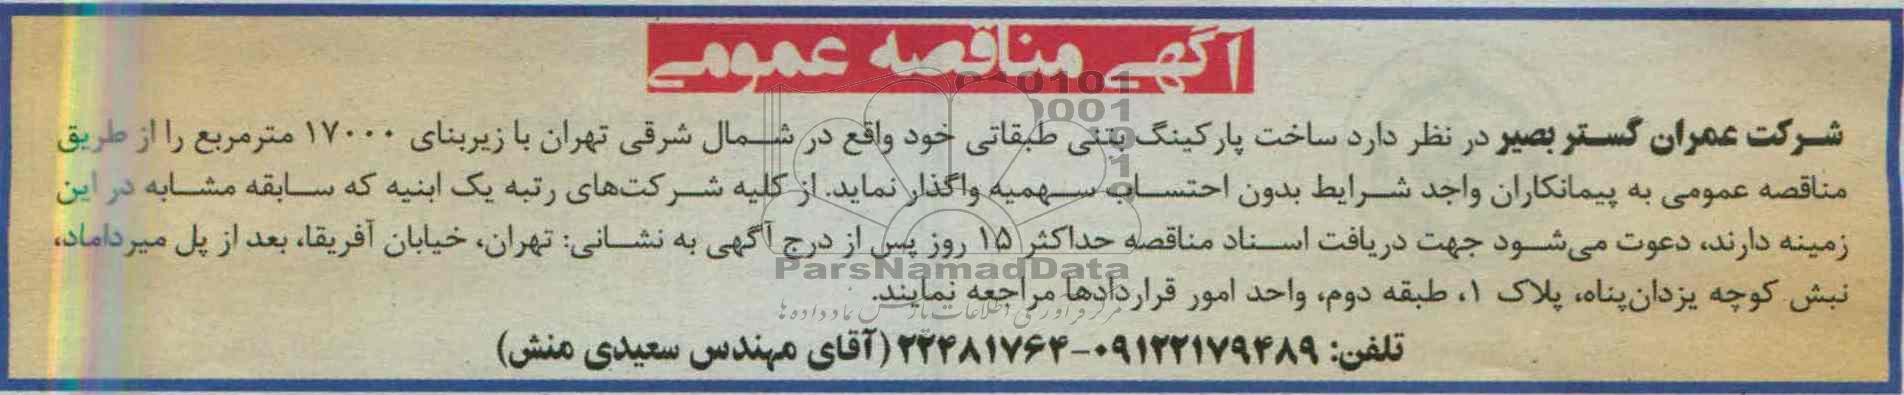 آگهی مناقصه عمومی
شرکت عمران گستر بصیر در نظر دارد ساخت پارکینگ بتنی طبقاتی خود واقع در شمال شرقی تهران با زیربنای ۱۷۰۰۰ مترمربع را از طریق
مناقصه عمومی به پیمانکاران واجد شرایط بدون احتساب سهمیه واگذار نماید. از کلیه شرکت‌های رتبه یک ابنیه که سابقه مشابه در این
زمینه دارند، دعوت می‌شود جهت دریافت اسناد مناقصه حداکثر ۱۵ روز پس از درج آگهی به نشانی: تهران، خیابان آفریقا، بعد از پل میرداماد،
نبش کوچه یزدان‌پناه، پلاک ۱، طبقه دوم، واحد امور قراردادها مراجعه نمایند.
تلفن: ۰۹۱۲۲۱۷۹۴۸۹-۲۲۴۸۱۷۶۴ (آقای مهندس سعیدی منش)
ParsNamadData